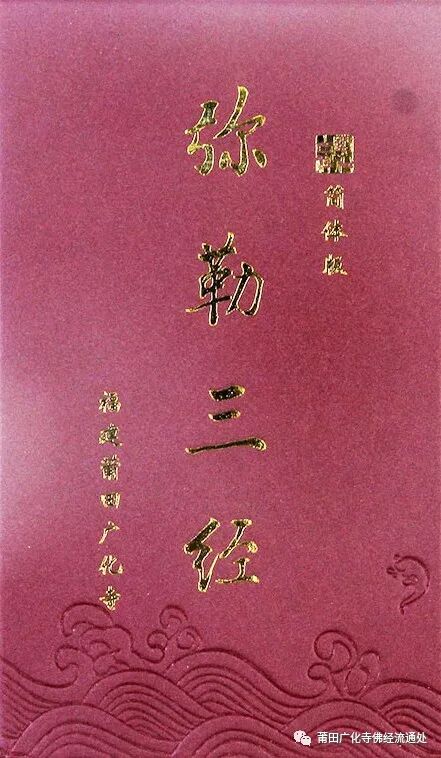 简体版
弥勒三经
福建莆田广化寺
莆田广化寺佛经流通处